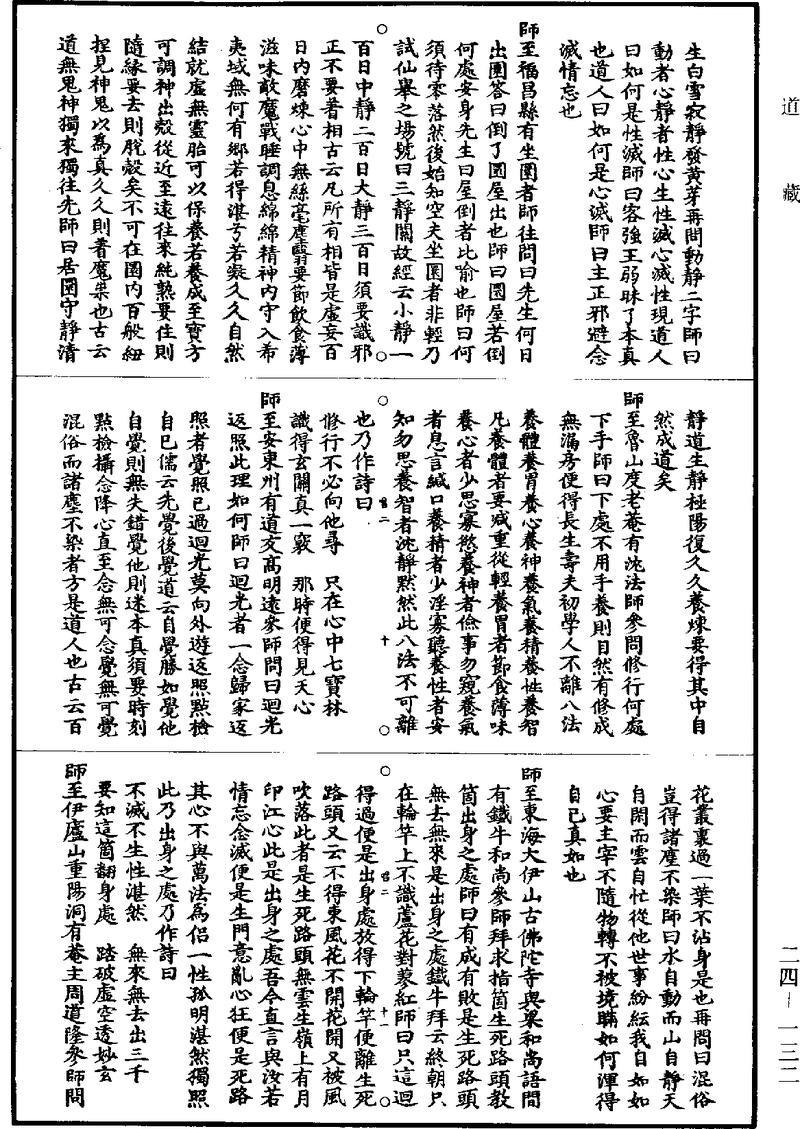 道藏
生白雪寂靜發黃芽再問動靜二字師曰
動者心靜者性心生性滅心滅性現道人
曰如何是性滅師曰客強王弱昧了本真
也道人曰如何是心滅師曰主正邪避念
滅情忘也
師至福昌縣有坐圜者師往問曰先生何日
出圜答曰倒了圜屋出也師曰圜屋若倒
何處安身先生曰屋倒者比喻也師曰何
須待零落然後始知空夫坐圜者非輕乃
試仙舉之場號曰三靜關故經云小靜一
百日中靜二百日大靜三百日須要識邪
正不要著相古云凡所有相皆是虛妄百
日內磨煉心中無絲毫塵翳要節飲食薄
滋味敵魔戰睡調息綿綿精神內守入希
夷域無何有鄉若得湛兮若凝久久自然
結就虛無靈胎可以保養若養成至寶方
可調神出殼從近至遠往來純熟要住則
隨緣要去則脫殼矣不可在圜內百般紐
捏見神鬼以為真久久則著魔祟也古云
道無鬼神獨來獨往先師曰居圜守靜清
靜道生靜極陽復久久養煉要得其中自
然成道矣
師至魯山度老菴有沈法師參問修行何處
下手師曰下處不用手養則自然有修成
無漏房便得長生壽夫初學人不離八法
養體養胃養心養神養氣養精養性養智
凡養體者要減重從輕養胃者節食薄味
養心者少思寡慾養神者儉事勿窺養氣
者息言緘口養精者少淫寡聽養性者安
知勿思養智者沈靜默然此八法不可離
也乃作詩曰
修行不必向他尋　只在心中七寶林
識得玄關真一竅　那時便得見天心
師至安東州有道友高明遠來師問曰迴光
返照此理如何師曰迴光者一念歸家返
照者覺照已過迴光莫向外遊返照點檢
自己儒云先覺後覺道云自覺勝如覺他
自覺則無失錯覺他則迷本真須要時刻
點檢攝念降心直至念無可念覺無可覺
混俗而諸塵不染者方是道人也古云百
花叢裏過一葉不沾身是也再問曰混俗
豈得諸塵不染師曰水自動而山自靜天
自閑而雲自忙從他世事紛紜我自如如
心要主宰不隨物轉不被境瞞如何渾得
自己真如也
師至東海大伊山古佛陀寺與果和尚語間
有鐵牛和尚參師拜求指箇生死路頭教
箇出身之處師曰有成有敗是生死路頭
無去無來是出身之處鐵牛拜云終朝只
在輪竿上不識蘆花對蓼紅師曰只這迴
得過便是出身處放得下輪竿便離生死
路頭又云不得東風花不開花開又被風
吹落此者是生死路頭無雲生嶺上有月
印江心此是出身之處吾今直言與汝若
情忘念滅便是生門意亂心狂便是死路
其心不與萬法為侶一性孤明湛然獨照
此乃出身之處乃作詩曰
不滅不生性湛然　無來無去出三千
要知這箇翻身處　踏破虛空透妙玄
師至伊廬山重陽洞有菴主周道隆參師問
二四—一三二